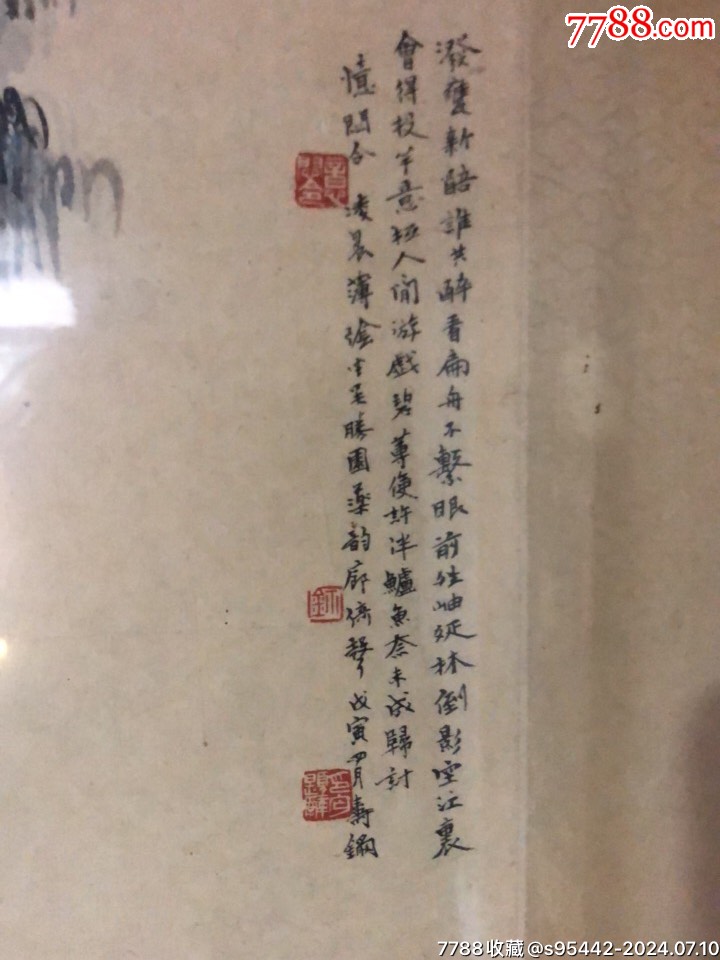 7788.com
潑甕新醅誰共醉看扁舟不繫眼前雲岫延林倒影空江裏
會得投竿意極人間游戲碧蓴便許伴鱸魚奈未成歸計
憶閒令 凌晨薄 勝園藥韵廊 戊寅四月壽鏞
7788收藏@s95442-2024.07.10